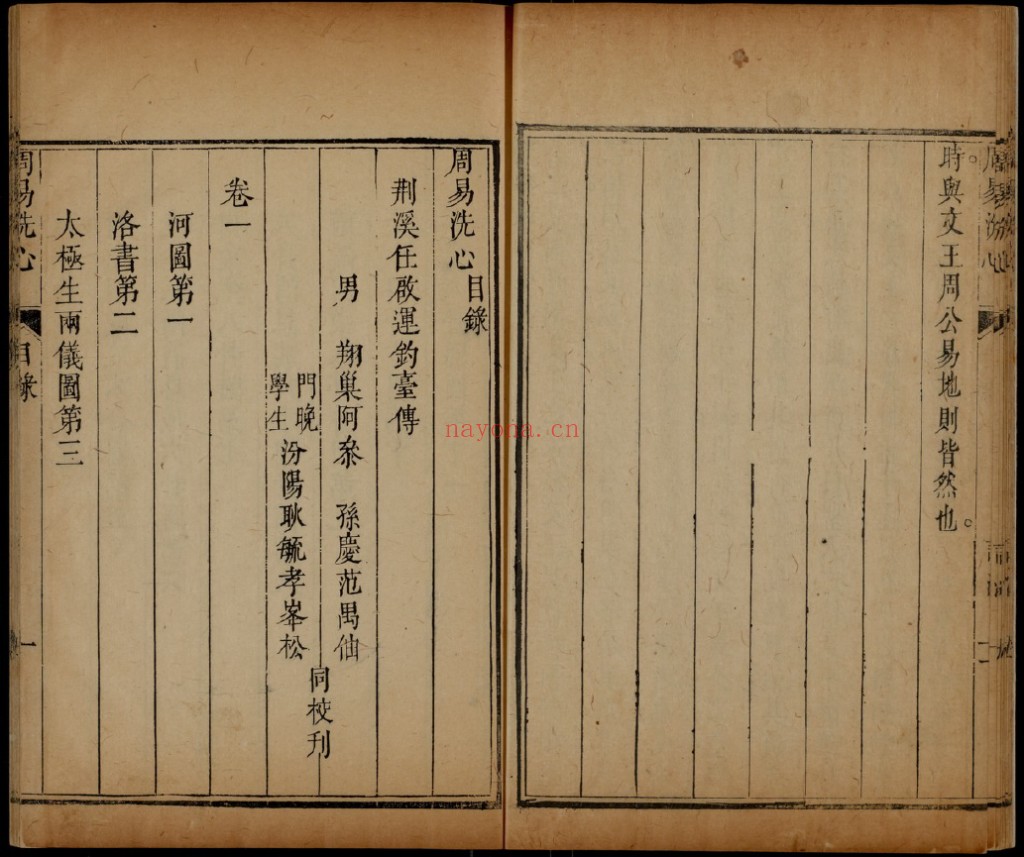 周易洗心
時與文王周公易地則皆然也。
周易洗心目錄
荆溪任啟運釣臺傳
男　翔巢阿叅　孫慶范禺仙
門晚
學生
汾陽耿毓孝峯松
同校刋
卷一
河圖第一
洛書第二
太極生兩儀圖第三
周易洗心
目錄
一
nayona.cn